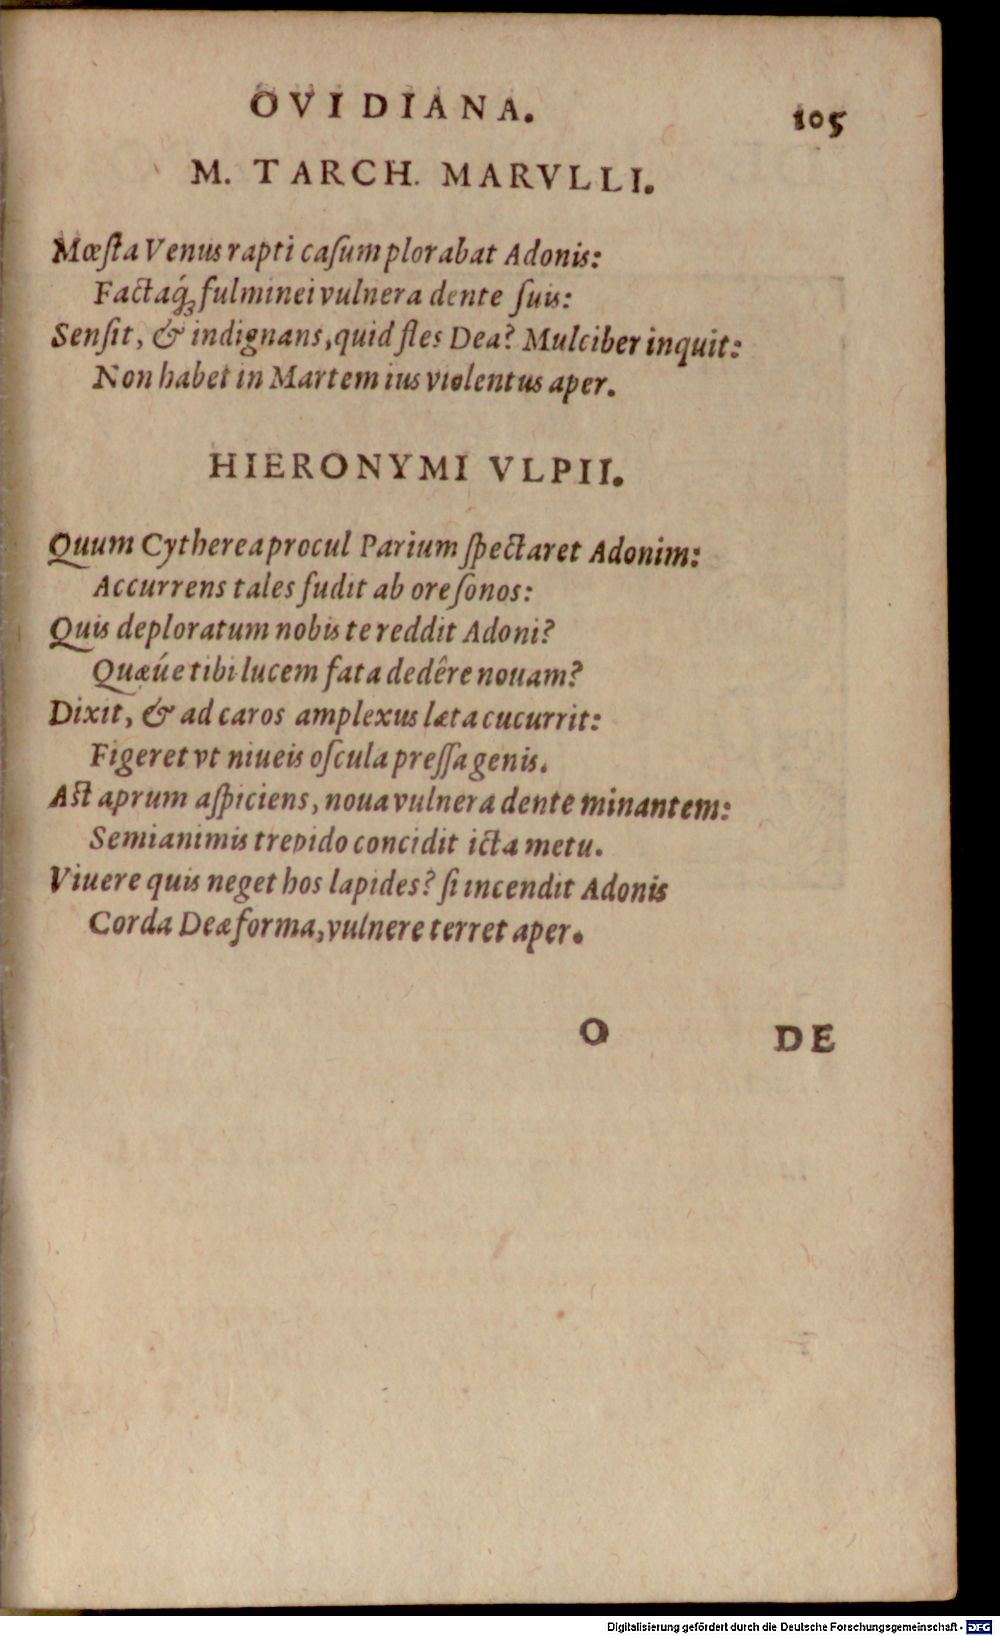 OVIDIANA. 105
M. TARCH. MARVLLI.
Mœſta Venus rapti caſum plorabat Adonis:
Factaq́ꝫ fulminei vulnera dente ſuis:
Senſit, & indignans, quid fles Dea? Mulciber inquit:
Non habet in Martem ius violentus aper.
HIERONYMI VLPII.
Quum Cytherea procul Parium ſpectaret Adonim:
Accurrens tales fudit ab ore ſonos:
Quis deploratum nobis te reddit Adoni?
Quæúe tibi lucem fata dedêre nouam?
Dixit, & ad caros amplexus læta cucurrit:
Figeret vt niueis oſcula preſſa genis.
Aſt aprum aſpiciens, noua vulnera dente minantem:
Semianimis trepido concidit icta metu.
Viuere quis neget hos lapides? ſi incendit Adonis
Corda Deæ forma, vulnere terret aper.
O DE
Digitalisierung gefördert durch die Deutsche Forschungsgemeinschaft - DFG